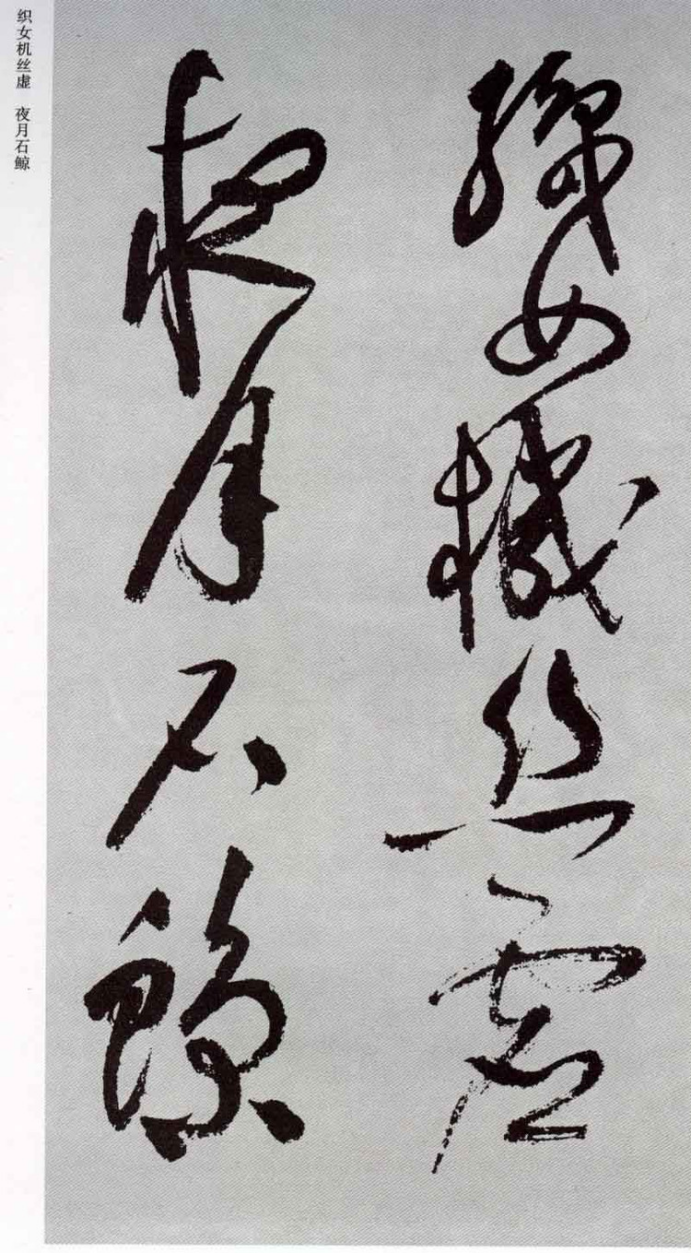 織女機絲虛
夜月石鯨
织女机丝虚 夜月石鲸